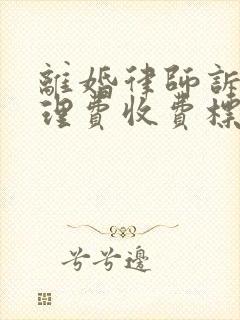 離婚律師訴
理費收費標
兮兮邊